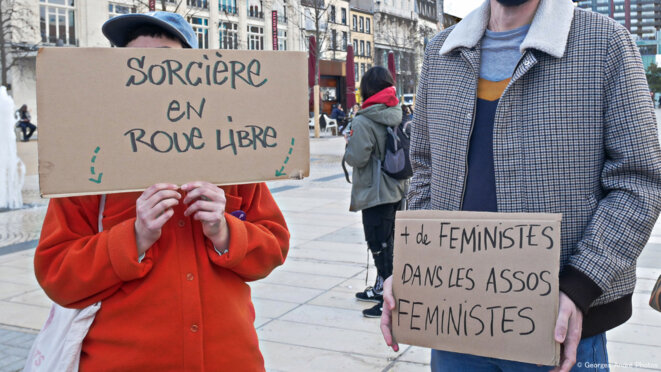 SORCIÈRE
EN
ROUE LIBRE
+ de FEMINISTES
DANS LES ASSOS
FEMINISTES
© Georges André Photos